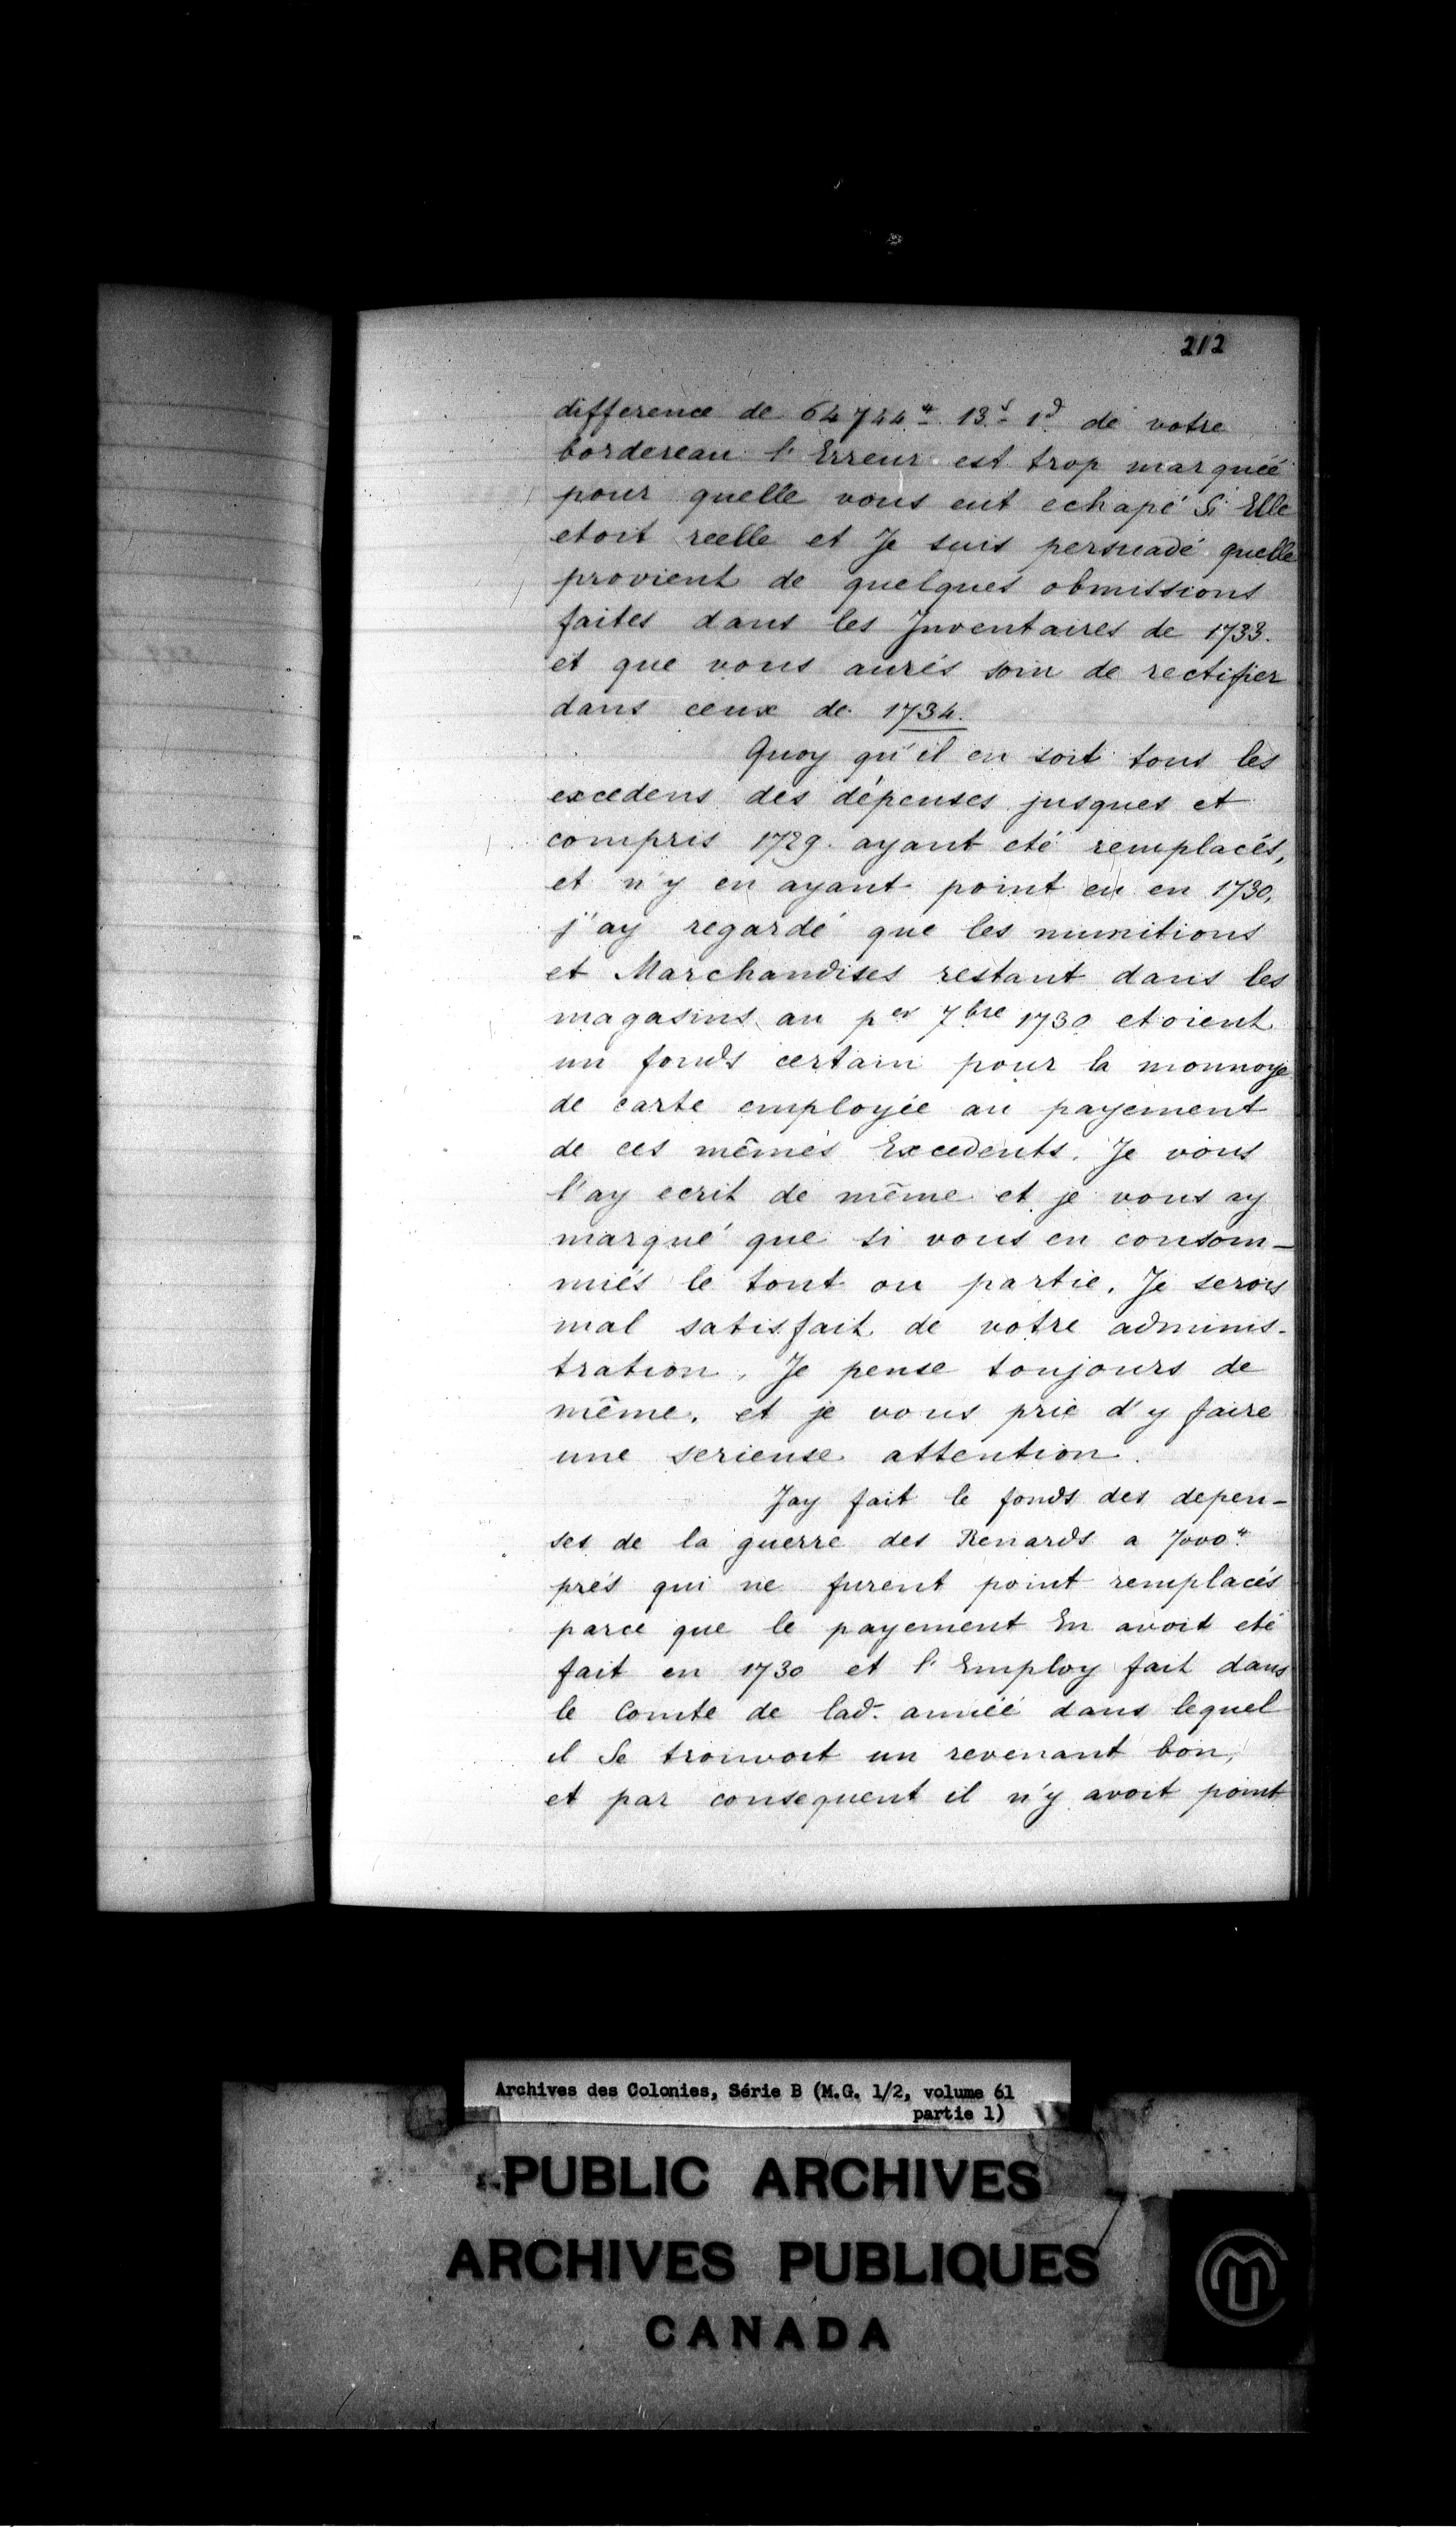 212
difference de 64744# 13s 1d de votre
bordereau l'Erreur est trop marquée
pour quelle vous eut echapé Si Elle
etoit reelle et Je suis persuadé quelle
provient de quelques obmissions
faites dans les Inventaires de 1733.
et que vous aurés soin de rectifier
dans ceux de 1734.
Quoy qu'il en soit tous les
excedens des dépenses jusques et
compris 1729. ayant eté remplacés,
et n'y en ayant point eu en 1730,
j'ay regardé que les munitions
et Marchandises restant dans les
magasins au per 7bre 1730 etoient
un fonds certain pour la monnoye
de carte employée au payement
de ces mêmes Excedents. Je vous
l'ay ecrit de même et je vous ay
marqué que si vous en consom-
miés le tout ou partie, Je serois
mal satisfait de votre adminis-
tration. Je pense toujours de
même, et je vous prie d'y faire
une serieuse attention.
Jay fait le fonds des depen-
ses de la guerre des Renards a 7000#
prés qui ne furent point remplacés
parce que le payement En avoit eté
fait en 1730 et l'Employ fait dans
le Comte de lad. année dans lequel
il Se trouvoit un revenant bon,
et par consequent il n'y avoit point
Archives des Colonies, Série B (M.G. 1/2, volume 61
partie 1)
PUBLIC ARCHIVES
ARCHIVES PUBLIQUES
CANADA